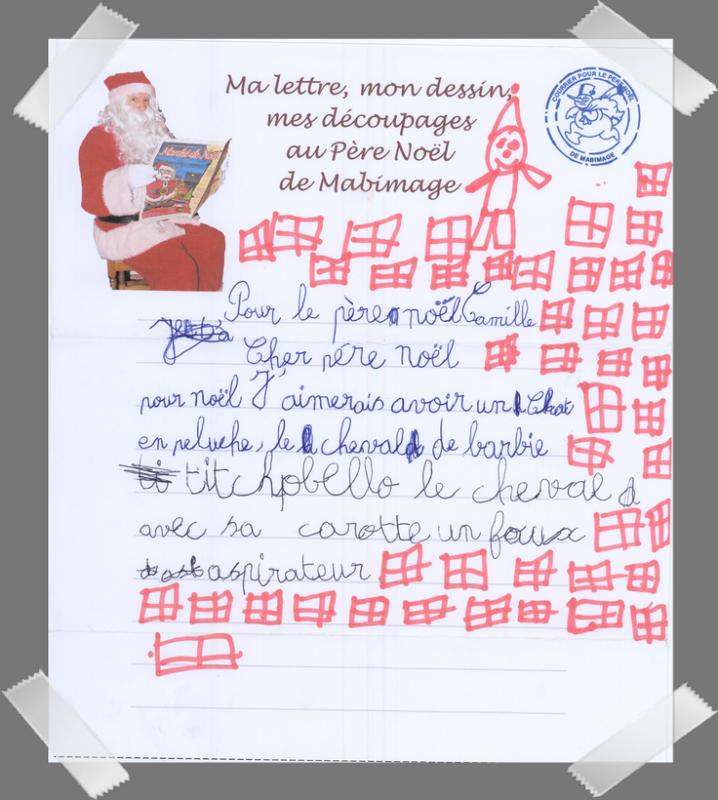 Ma lettre, mon dessin,
mes découpages
au Père Noël
de Mabimage
COURRIER POUR LE PERE NOËL
DE MABIMAGE
Pour le père noël Camille
Cher père noël
pour noël J'aimerais avoir un Chat
en peluche, le cheval de barbie
titchpbello le cheval
avec sa carotte un faux
aspirateur